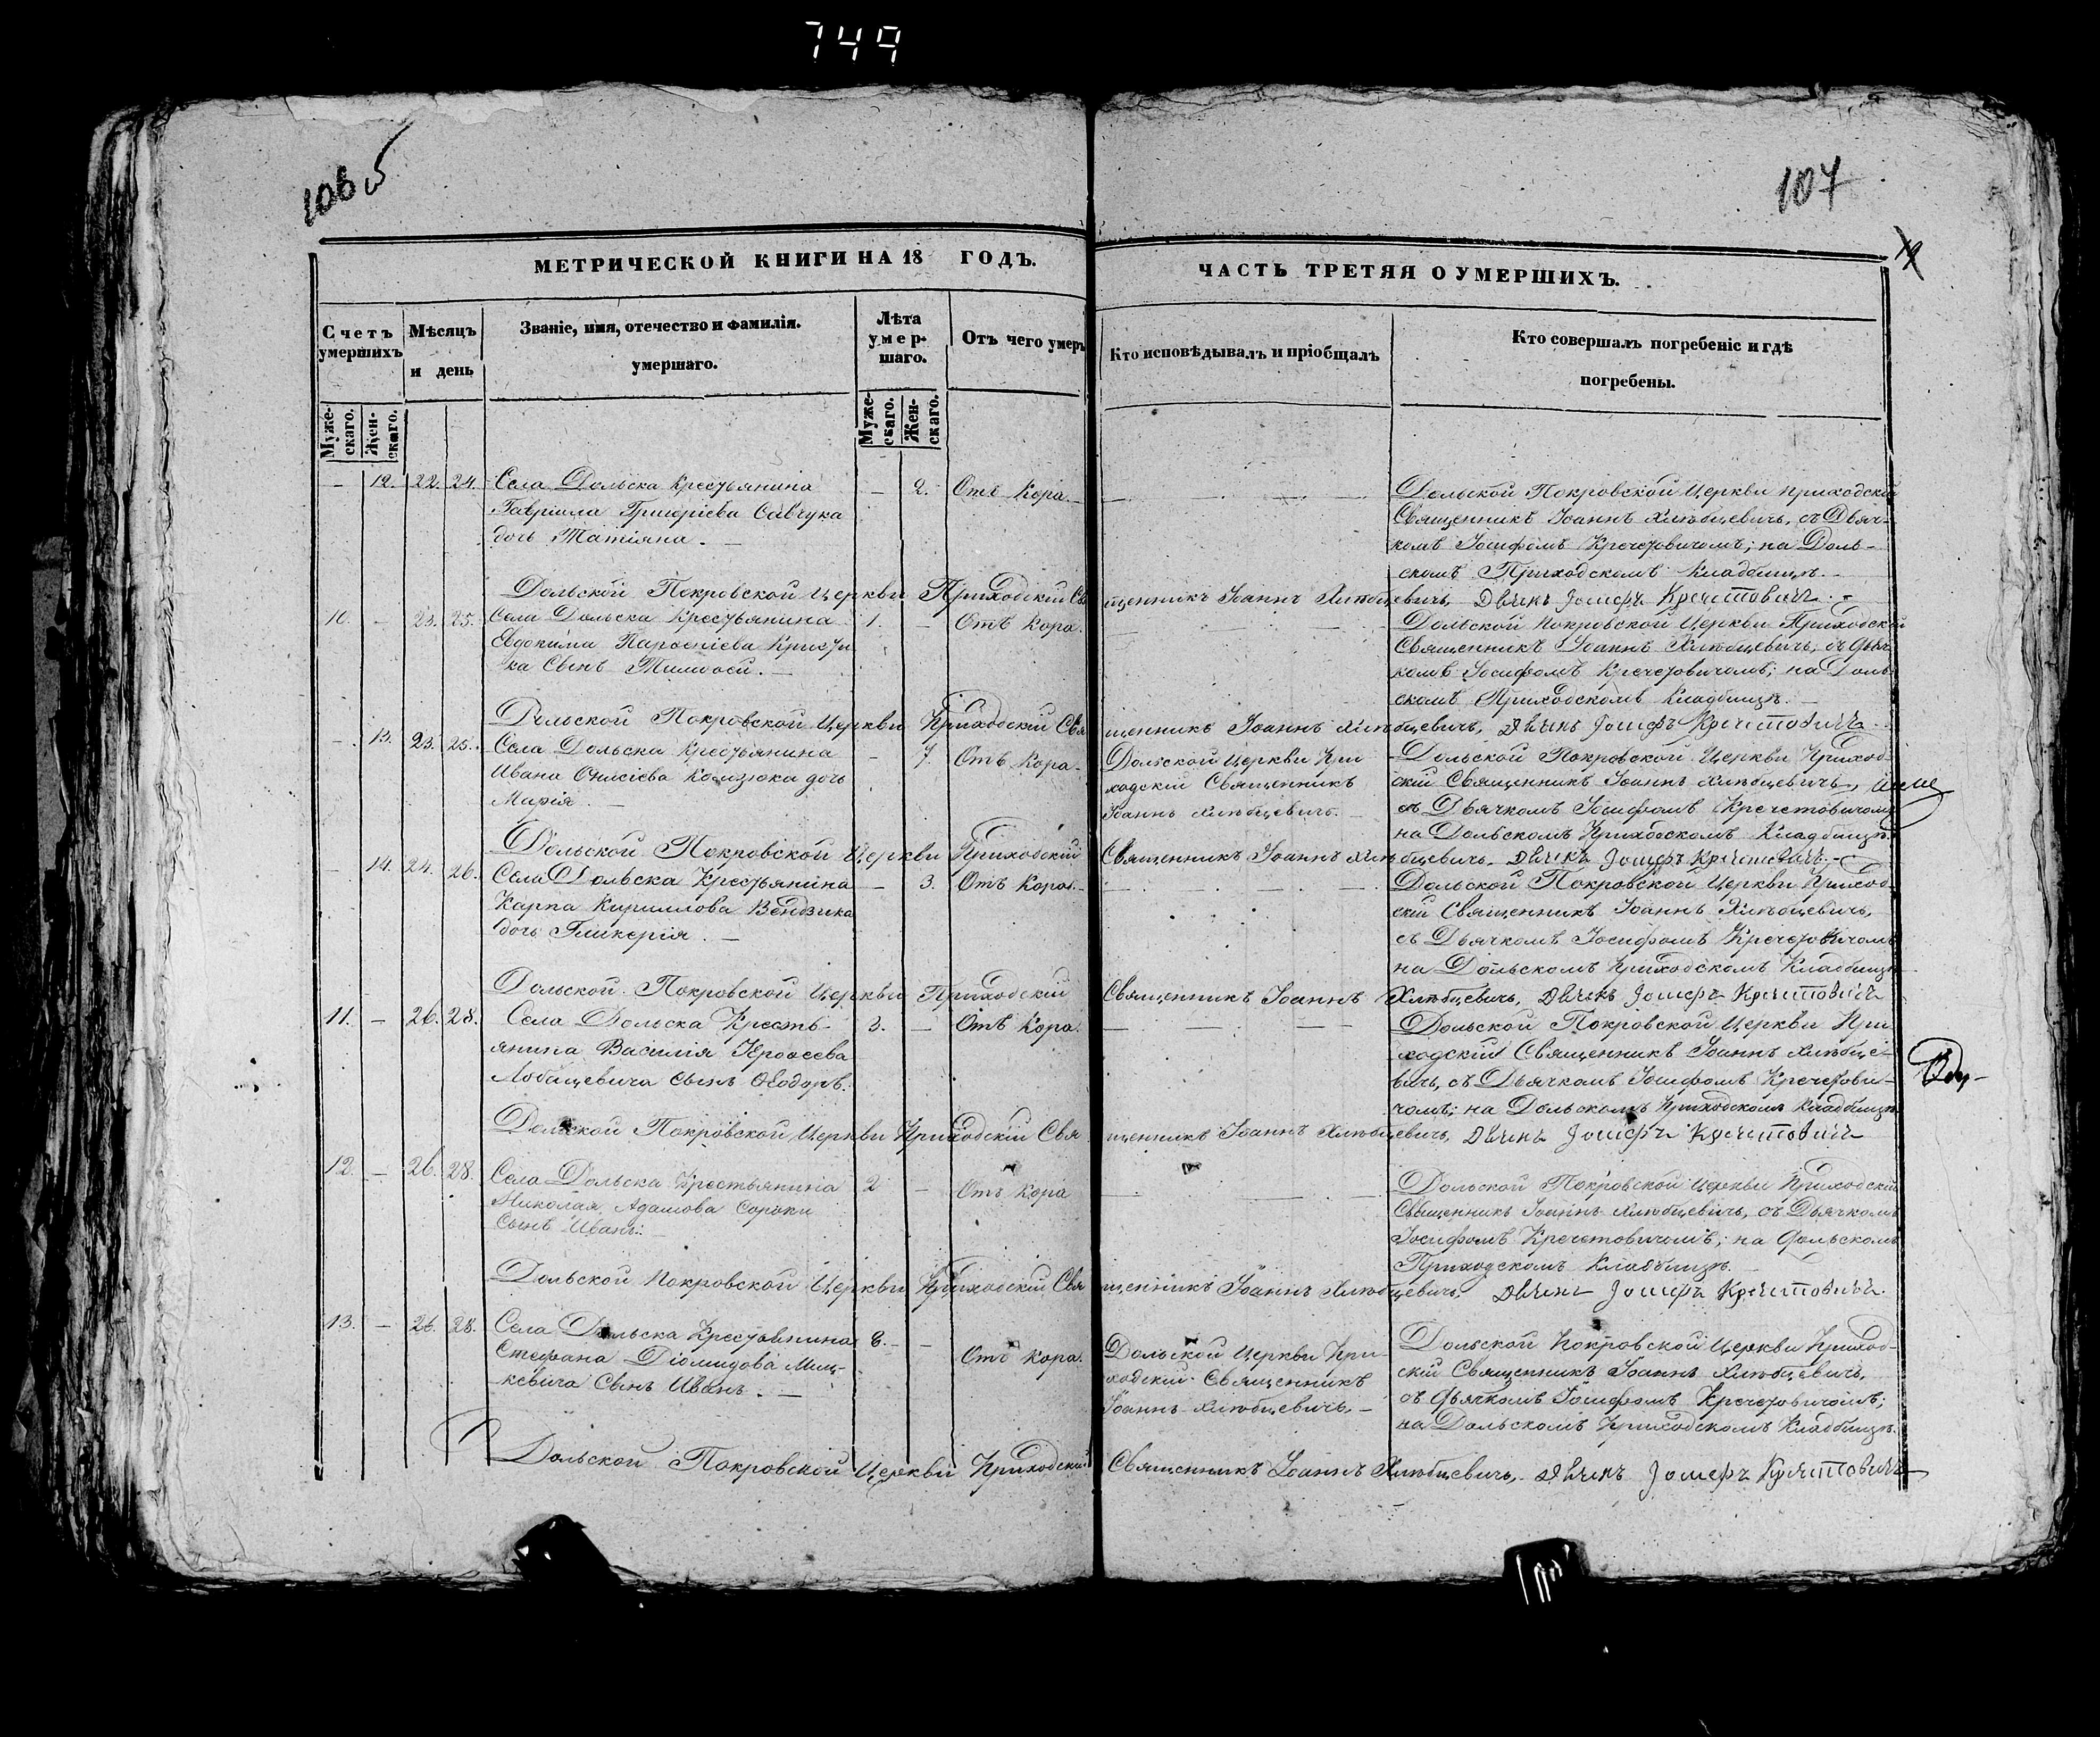 749
106 б
107
МЕТРИЧЕСКОЙ КНИГИ НА 18 ГОДЪ.
ЧАСТЬ ТРЕТЯЯ О УМЕРШИХЪ.
Счетъ умершихъ
Мѣсяцъ и день
Званіе, имя, отечество и фамилія.
умершаго.
Лѣта умершаго.
Отъ чего умеръ
Кто исповѣдывалъ и пріобщалъ
Кто совершалъ погребеніе и гдѣ
погребены.
Мужескаго.
Женскаго.
Мужескаго.
Женскаго.
— 12. 22. 24. Села Дольска Крестьянина — 2. Отъ Кора.
Гавріила Григоріева Савчука
дочь Татіяна. —
Дольской Покровской Церкви Приходскій
Священникъ Іоаннъ Хлѣбцевичь, съ Дьяч-
комъ Іосифомъ Кречетовичомъ; на Доль-
скомъ Приходскомъ Кладбищѣ. —
Дольской Покровской Церкви Приходскій Священникъ Іоаннъ Хлѣбцевичь, Дьячкъ Іосифъ Кречетовичъ. —
10. — 23. 25. Села Дольска Крестьянина 1. — Отъ Кора.
Евдокима Парѳеніева Кристи
ка Сынъ Тимоѳей. —
Дольской Покровской Церкви Приходскій
Священникъ Іоаннъ Хлѣбцевичь, съ Дьяч
комъ Іосифомъ Кречетовичомъ; на Доль
скомъ Приходскомъ Кладбищѣ. —
Дольской Покровской Церкви Приходскій Священникъ Іоаннъ Хлѣбцевичь, Дьячкъ Іосифъ Кречетовичъ
— 13. 23. 25. Села Дольска Крестьянина — 7 Отъ Кора.
Ивана Онисіева Комзюка дочь
Марія. —
Дольской Церкви При
ходскій Священникъ
Іоаннъ Хлѣбцевичь. —
Дольской Покровской Церкви Приход-
скій Священникъ Іоаннъ Хлѣбцевичь,
съ Дьячкомъ Іосифомъ Кречетовичомъ
на Дольскомъ Приходскомъ Кладбищѣ.
Дольской Покровской Церкви Приходскій Священникъ Іоаннъ Хлѣбцевичь. Дьячкъ Іосифъ Кречетовичъ. —
14. 24. 26. Села Дольска Крестьянина — 3. Отъ Кора. —
Карпа Кириллова Вендзика
дочь Гликерія. —
Дольской Покровской Церкви Приход-
скій Священникъ Іоаннъ Хлѣбцевичь,
съ Дьячкомъ Іосифомъ Кречетовичомъ
на Дольскомъ Приходскомъ Кладбищѣ
Дольской Покровской Церкви Приходскій Священникъ Іоаннъ Хлѣбцевичь, Дьячкъ Іосифъ Кречетовичъ
11. — 26. 28. Села Дольска Кресть- 3. — Отъ Кора.
янина Василія Ероѳеева
Лобацевича Сынъ Ѳеодоръ.
Дольской Покровской Церкви При
ходскій Священникъ Іоаннъ Хлѣбце-
вичь, съ Дьячкомъ Іосифомъ Кречетови-
чомъ; на Дольскомъ Приходскомъ Кладбищѣ
Дольской Покровской Церкви Приходскій Священникъ Іоаннъ Хлѣбцевичь, Дьячкъ Іосифъ Кречетовичъ
12. — 26. 28. Села Дольска Крестьянина 2 — Отъ Кора
Николая Адамова Сороки
Сынъ Иванъ. —
Дольской Покровской Церкви Приходскій
Священникъ Іоаннъ Хлѣбцевичь, съ Дьячкомъ
Іосифомъ Кречетовичомъ; на Дольскомъ
Приходскомъ Кладбищѣ. —
Дольской Покровской Церкви Приходскій Священникъ Іоаннъ Хлѣбцевичь, Дьячкъ Іосифъ Кречетовичъ.
13. — 26. 28. Села Дольска Крестьянина 8. — Отъ Кора.
Стефана Діомидова Миц-
кевича Сынъ Иванъ. —
Дольской Церкви При
ходскій Священникъ
Іоаннъ Хлѣбцевичь. —
Дольской Покровской Церкви Приход-
скій Священникъ Іоаннъ Хлѣбцевичь,
съ Дьячкомъ Іосифомъ Кречетовичомъ;
на Дольскомъ Приходскомъ Кладбищѣ.
Дольской Покровской Церкви Приходскій Священникъ Іоаннъ Хлѣбцевичь, Дьячкъ Іосифъ Кречетовичъ